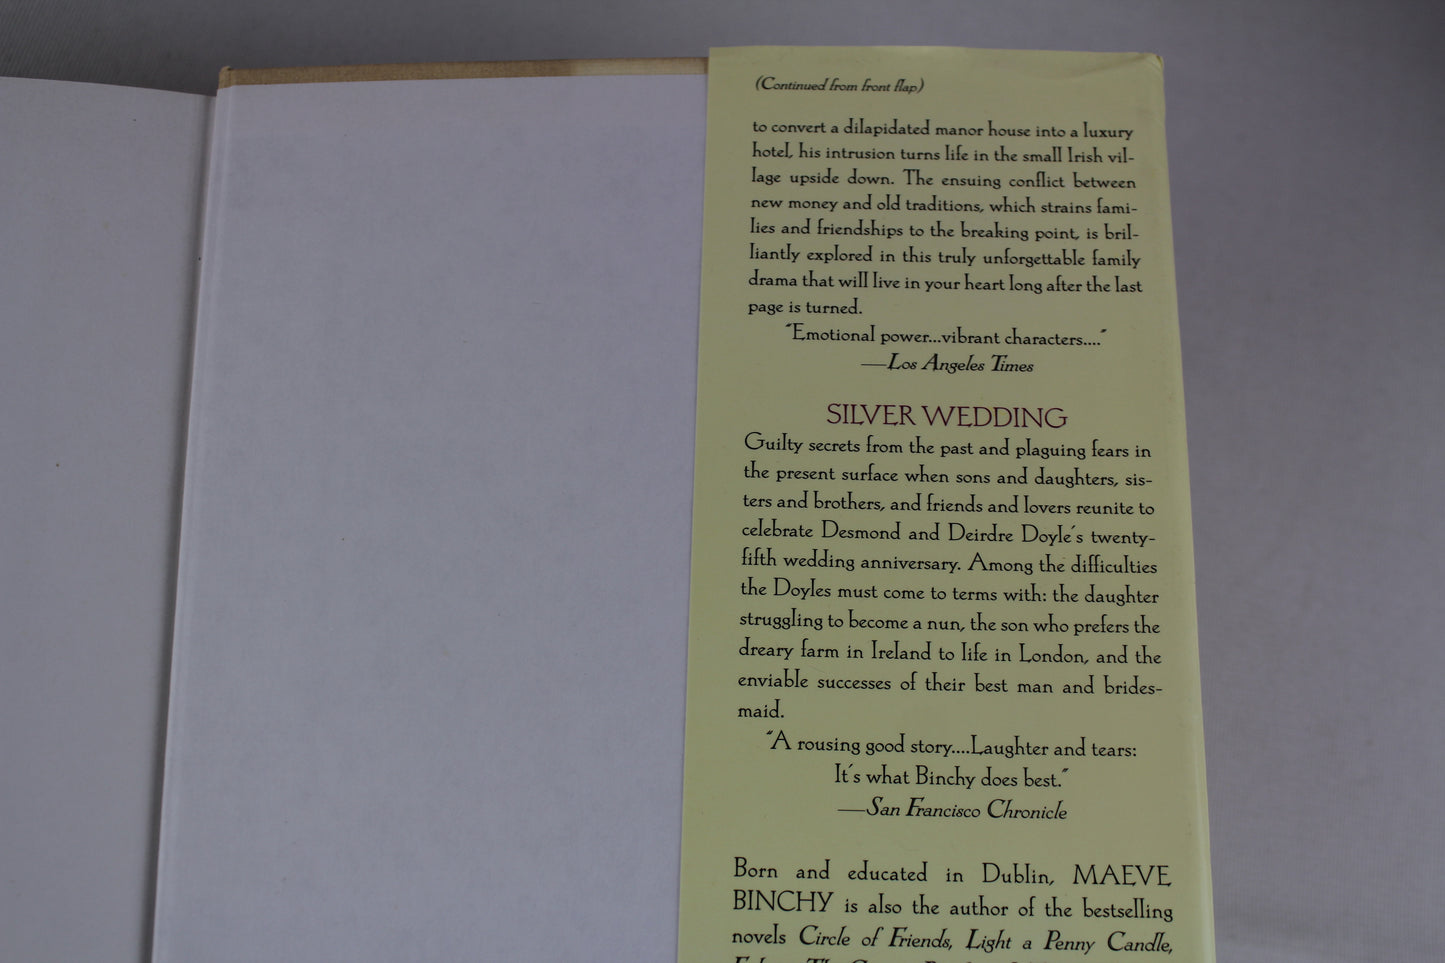 (Continued from front flap)
to convert a dilapidated manor house into a luxury
hotel, his intrusion turns life in the small Irish vil-
lage upside down. The ensuing conflict between
new money and old traditions, which strains fami-
lies and friendships to the breaking point, is bril-
liantly explored in this truly unforgettable family
drama that will live in your heart long after the last
page is turned.
"Emotional power...vibrant characters...."
—Los Angeles Times
SILVER WEDDING
Guilty secrets from the past and plaguing fears in
the present surface when sons and daughters, sis-
ters and brothers, and friends and lovers reunite to
celebrate Desmond and Deirdre Doyle's twenty-
fifth wedding anniversary. Among the difficulties
the Doyles must come to terms with: the daughter
struggling to become a nun, the son who prefers the
dreary farm in Ireland to life in London, and the
enviable successes of their best man and brides-
maid.
"A rousing good story....Laughter and tears:
It's what Binchy does best."
—San Francisco Chronicle
Born and educated in Dublin, MAEVE
BINCHY is also the author of the bestselling
novels Circle of Friends, Light a Penny Candle,